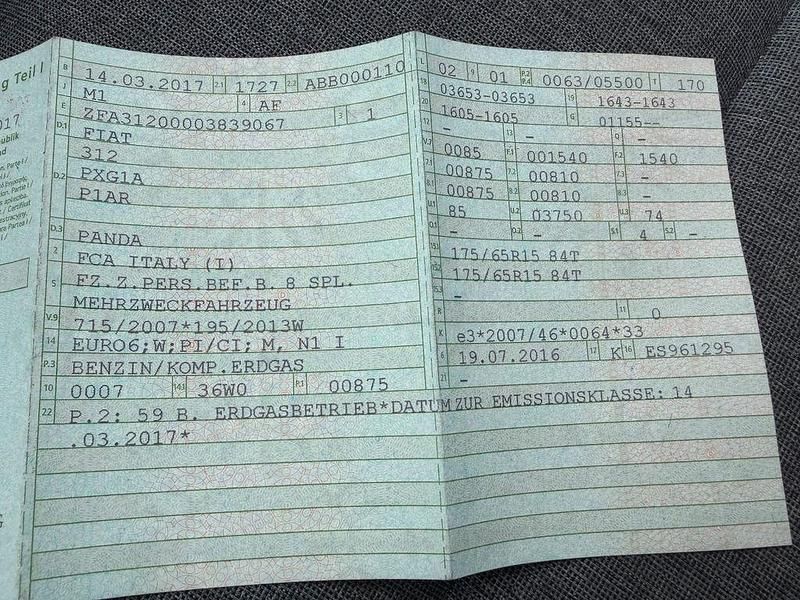 g Teil I
B 14.03.2017 2.1 1727 2.2 ABB000110
J M1 4 AF
E ZFA31200003839067 3 1
D.1 FIAT
312
D.2 PXG1A
P1AR
D.3 PANDA
2 FCA ITALY (I)
5 FZ.Z.PERS.BEF.B. 8 SPL.
MEHRZWECKFAHRZEUG
V.9 715/2007*195/2013W
14 EURO6;W;PI/CI; M, N1 I
P.3 BENZIN/KOMP.ERDGAS
10 0007 14.1 36W0 P.1 00875
22 P.2: 59 B. ERDGASBETRIEB*DATUM ZUR EMISSIONSKLASSE: 14
.03.2017*
L 02 9 01 P.2 P.4 0063/05500 T 170
18 03653-03653 19 1643-1643
20 1605-1605 G 01155--
12 - 13 - Q -
V.7 0085 F.1 001540 F.2 1540
7.1 00875 7.2 00810 7.3 -
8.1 00875 8.2 00810 8.3 -
U.1 85 U.2 03750 U.3 74
O.1 - O.2 - S.1 4 S.2 -
15.1 175/65R15 84T
15.2 175/65R15 84T
15.3 -
R 11 0
K e3*2007/46*0064*33
6 19.07.2016 17 K 16 ES961295
21 -